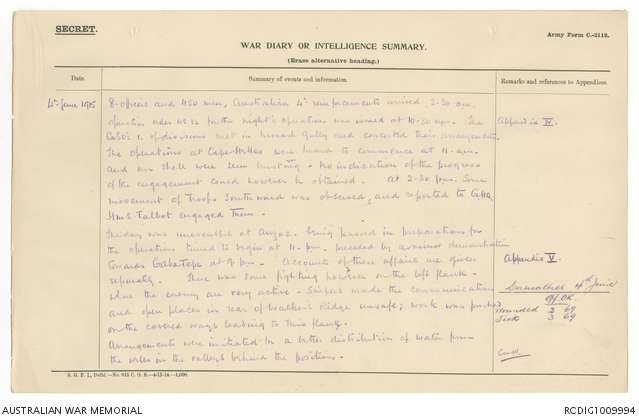 SECRET.
Army Form C.-2118.
WAR DIARY OR INTELLIGENCE SUMMARY.
(Erase alternative heading.)
Date.
Summary of events and information.
Remarks and references to Appendices.
4th June 1915
8 officers and 450 men, Australian 4th reinforcements arrived 2-30 a.m.
Operation order No 12 for the night's operations was issued at 10-30 am. The
GsSOs 1. of divisions met in Monash Gully and concerted their arrangements.
The operations at Cape Helles were heard to commence at 11 a.m.
and our shell were seen bursting - No indication of the progress
of the engagement could however be obtained. At 2-30 p.m. some
movement of troops southward was observed, and reported to GHQ.
HMS Talbot engaged them.
The day was uneventful at Anzac being passed in preparations for
the operations timed to begin at 11 pm. preceded by a demonstration
towards Gaba Tepe at 9 pm. Accounts of these affairs are given
separately. There was some fighting on the left flank -
where the enemy are very active - Snipers made the communications
and open places in rear of Walker's Ridge unsafe; work was pushed
on the covered ways leading to this flank.
Arrangements were initiated for a better distribution of water from
the wells in the valleys behind the positions.
Appendix IV.
Appendix V.
Casualties 4th June
Off. OR.
Wounded 2 69
Sick 3 69
S. G. P. I., Delhi.—No. 815 C. G. S.—4-12-14.—1,000.
AUSTRALIAN WAR MEMORIAL
RCDIG1009994